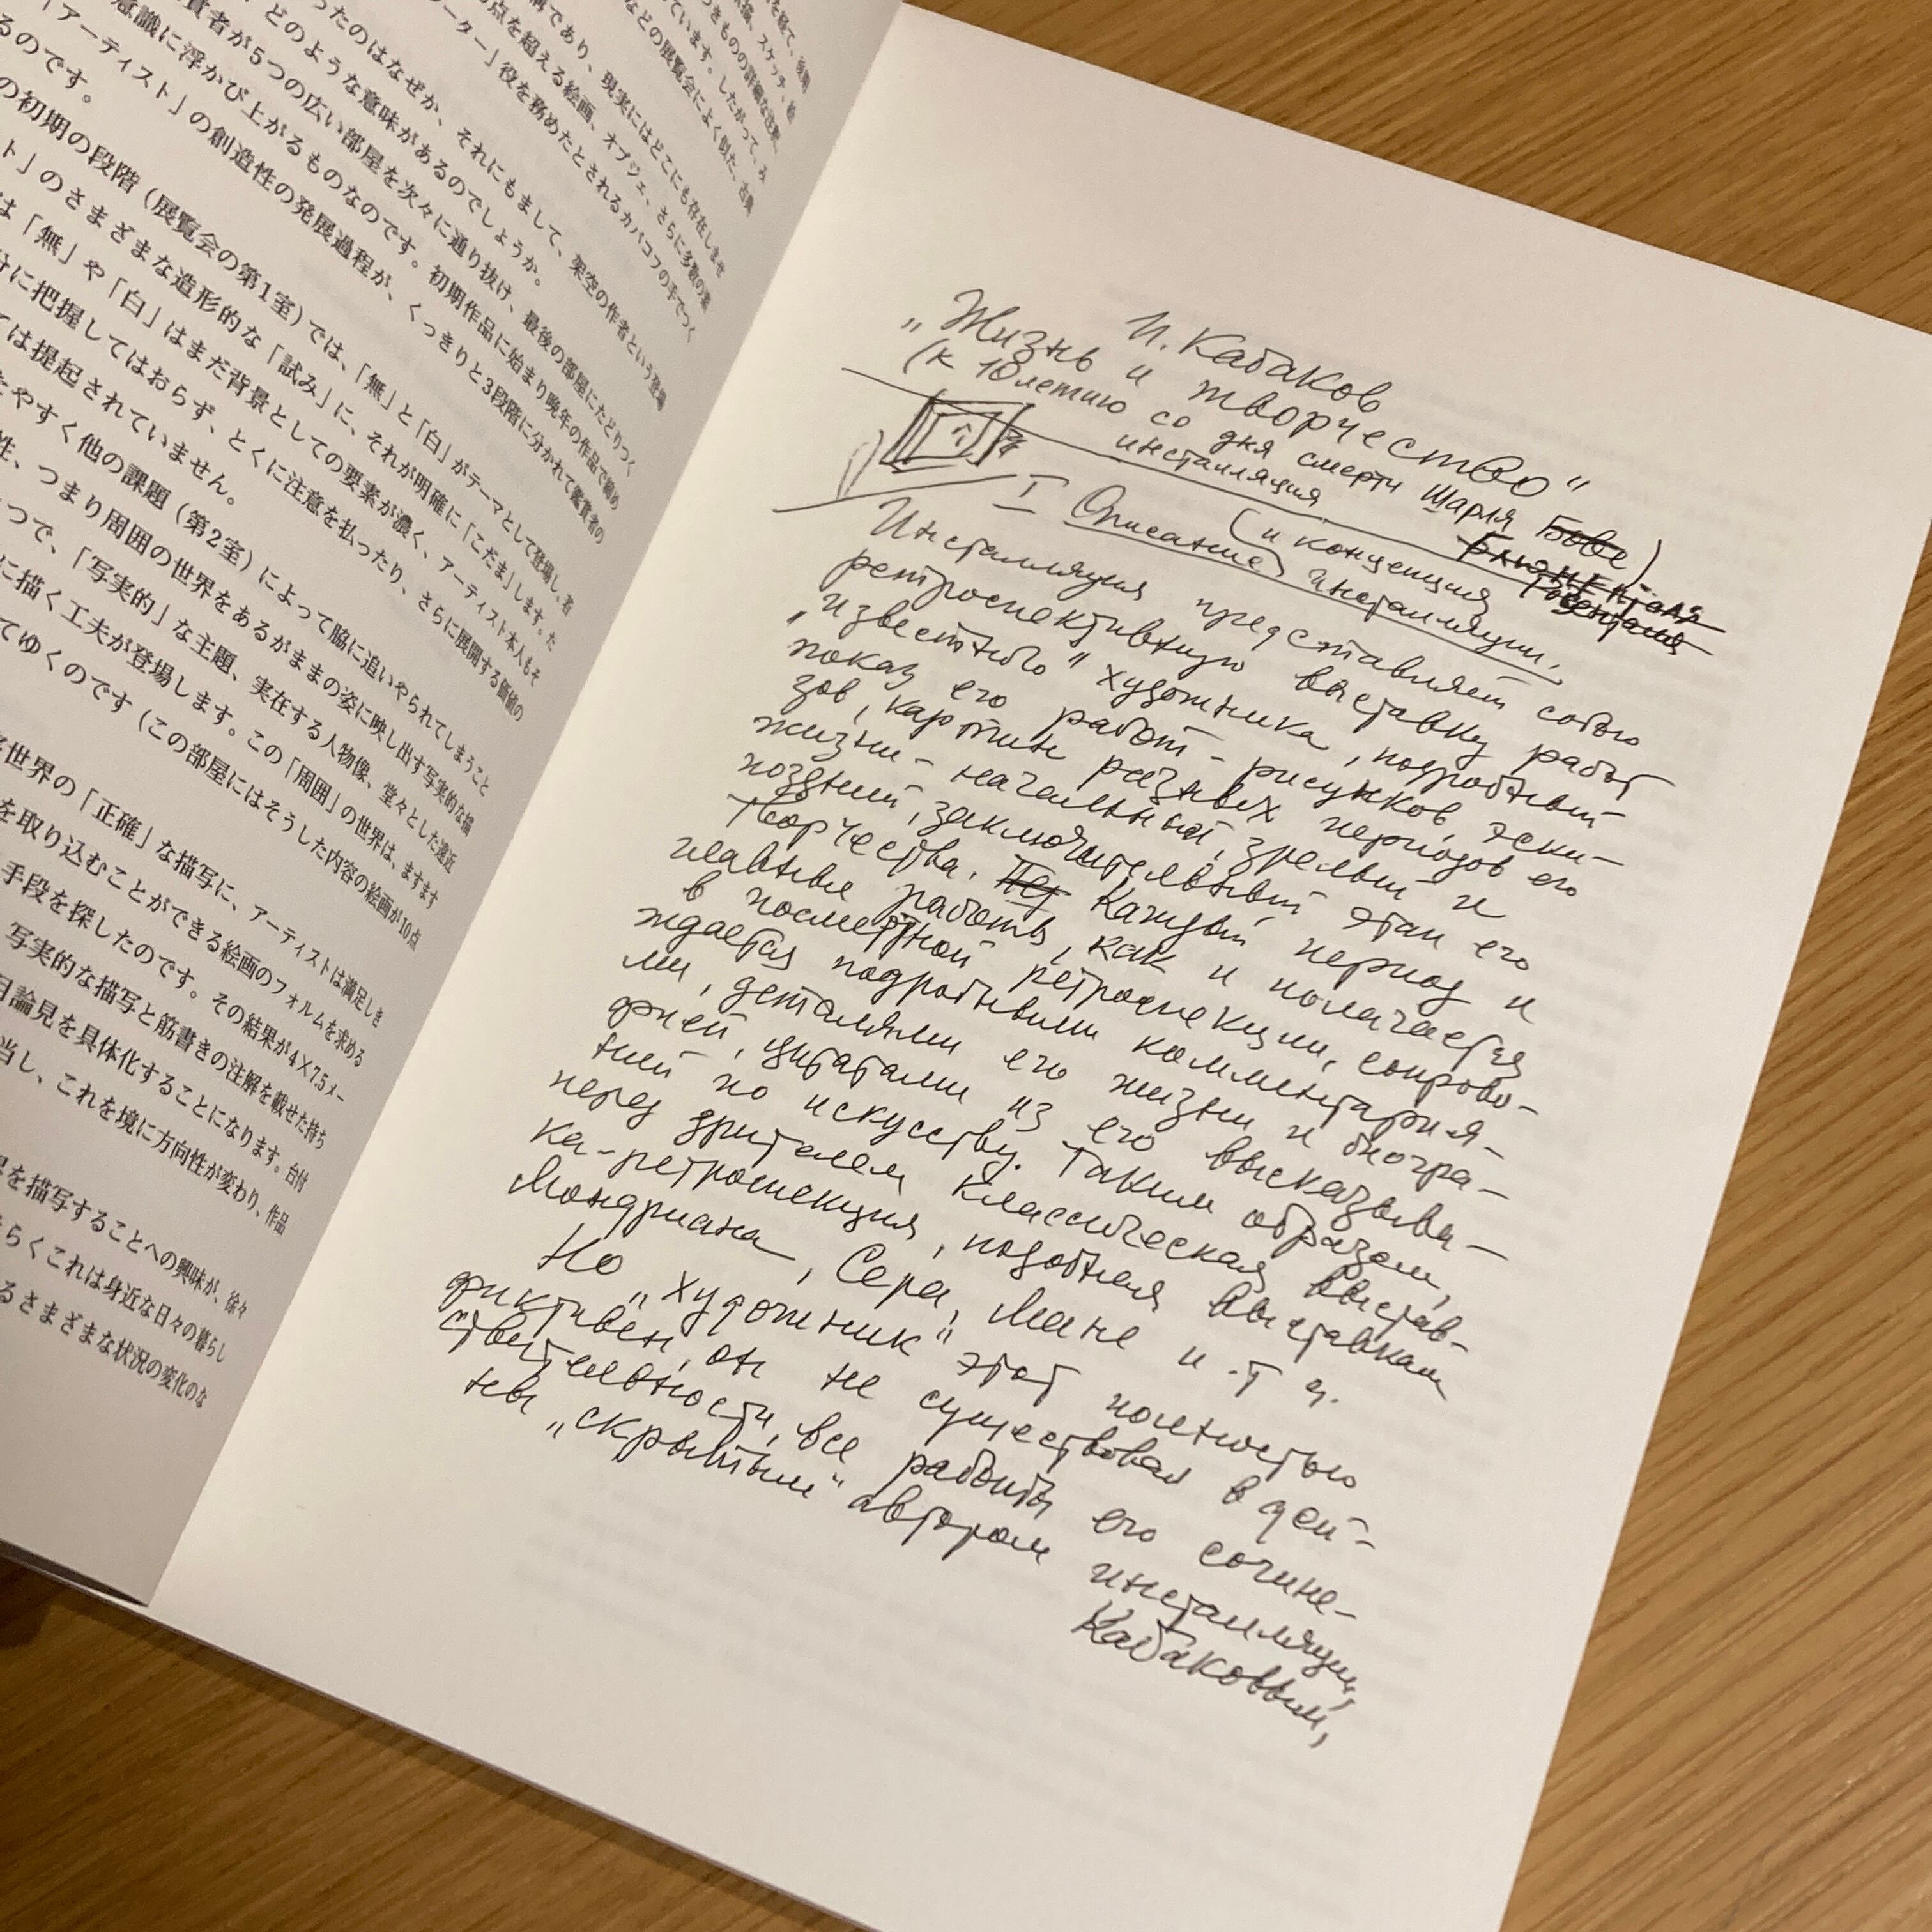 を経て、後期
描、スケッチ、絵
つきものの詳細な注釈、
ています。したがって、み
などの展覧会によく似た、古典
構であり、現実にはどこにも存在しませ
点を超える絵画、オブジェ、さらに多数の素
ーター」役を務めたとされるカバコフの手でつく
ったのはなぜか、それにもまして、架空の作者という登場
、どのような意味があるのでしょうか。
賞者が5つの広い部屋を次々に通り抜け、最後の部屋にたどりつく
意識に浮かび上がるものなのです。初期作品に始まり晩年の作品で締め
「アーティスト」の創造性の発展過程が、くっきりと3段階に分かれて鑑賞者の
るのです。
の初期の段階（展覧会の第1室）では、「無」と「白」がテーマとして登場し、若
ト」のさまざまな造形的な「試み」に、それが明確に「こだま」します。た
は「無」や「白」はまだ背景としての要素が濃く、アーティスト本人もそ
分に把握してはおらず、とくに注意を払ったり、さらに展開する価値の
ては提起されていません。
たやすく他の課題（第2室）によって脇に追いやられてしまうこと
性、つまり周囲の世界をあるがままの姿に映し出す写実的な描
つで、「写実的」な主題、実在する人物像、堂々とした遠近
に描く工夫が登場します。この「周囲」の世界は、ますます
てゆくのです（この部屋にはそうした内容の絵画が10点
世界の「正確」な描写に、アーティストは満足しき
を取り込むことができる絵画のフォルムを求める
手段を探したのです。その結果が4×7.5メー
写実的な描写と筋書きの注解を載せた持ち
目論見を具体化することになります。台付
当し、これを境に方向性が変わり、作品
界を描写することへの興味が、徐々
らくこれは身近な日々の暮らし
るさまざまな状況の変化のな
И. Кабаков
„Жизнь и творчество"
(к 10летию со дня смерти Шарля Бове)
инсталляция
I Описание (и концепция) инсталляции.
Инсталляция представляет собою
ретроспективную выставку работ
„известного" художника, подробный
показ его работ - рисунков, эски-
зов, картин разных периодов его
жизни - начальный, зрелый и
поздний, заключительный этап его
творчества. Каждый период и
главные работы, как и полагается
в посмертной ретроспекции, сопрово-
ждается подробными комментария-
ми, деталями его жизни и биогра-
фией, цитатами из его высказыва-
ний по искусству. Таким образом,
перед зрителем классическая выстав-
ка-ретроспекция, подобная выставкам
Мондриана, Сера, Мане и.т д.
Но „художник" этот полностью
фиктивен, он не существовал в дей-
ствительности, все работы его сочине-
ны „скрытым" автором инсталляции,
Кабаковым,